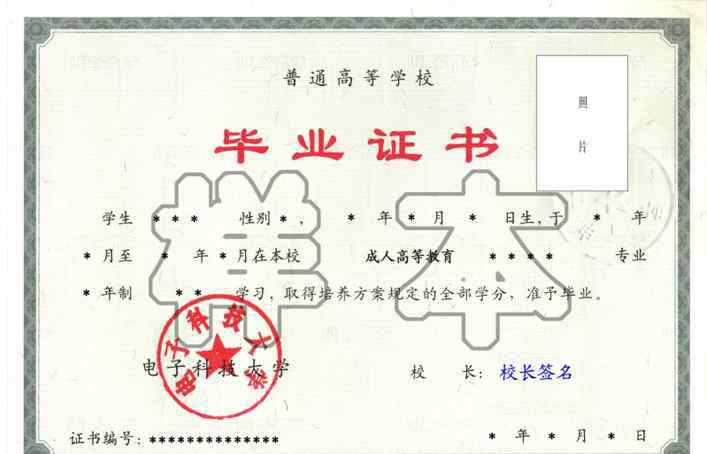 普通高等学校
照
片
毕业证书
样本
学生 * * * 性别 * , * 年 * 月 * 日生,于 * 年
* 月至 * 年 * 月在本校 成人高等教育 * * * * 专业
* 年制 * * 学习,取得培养方案规定的全部学分,准予毕业。
电子科技大学
电子科技大学 校 长: 校长签名
证书编号:************** * 年 * 月 * 日